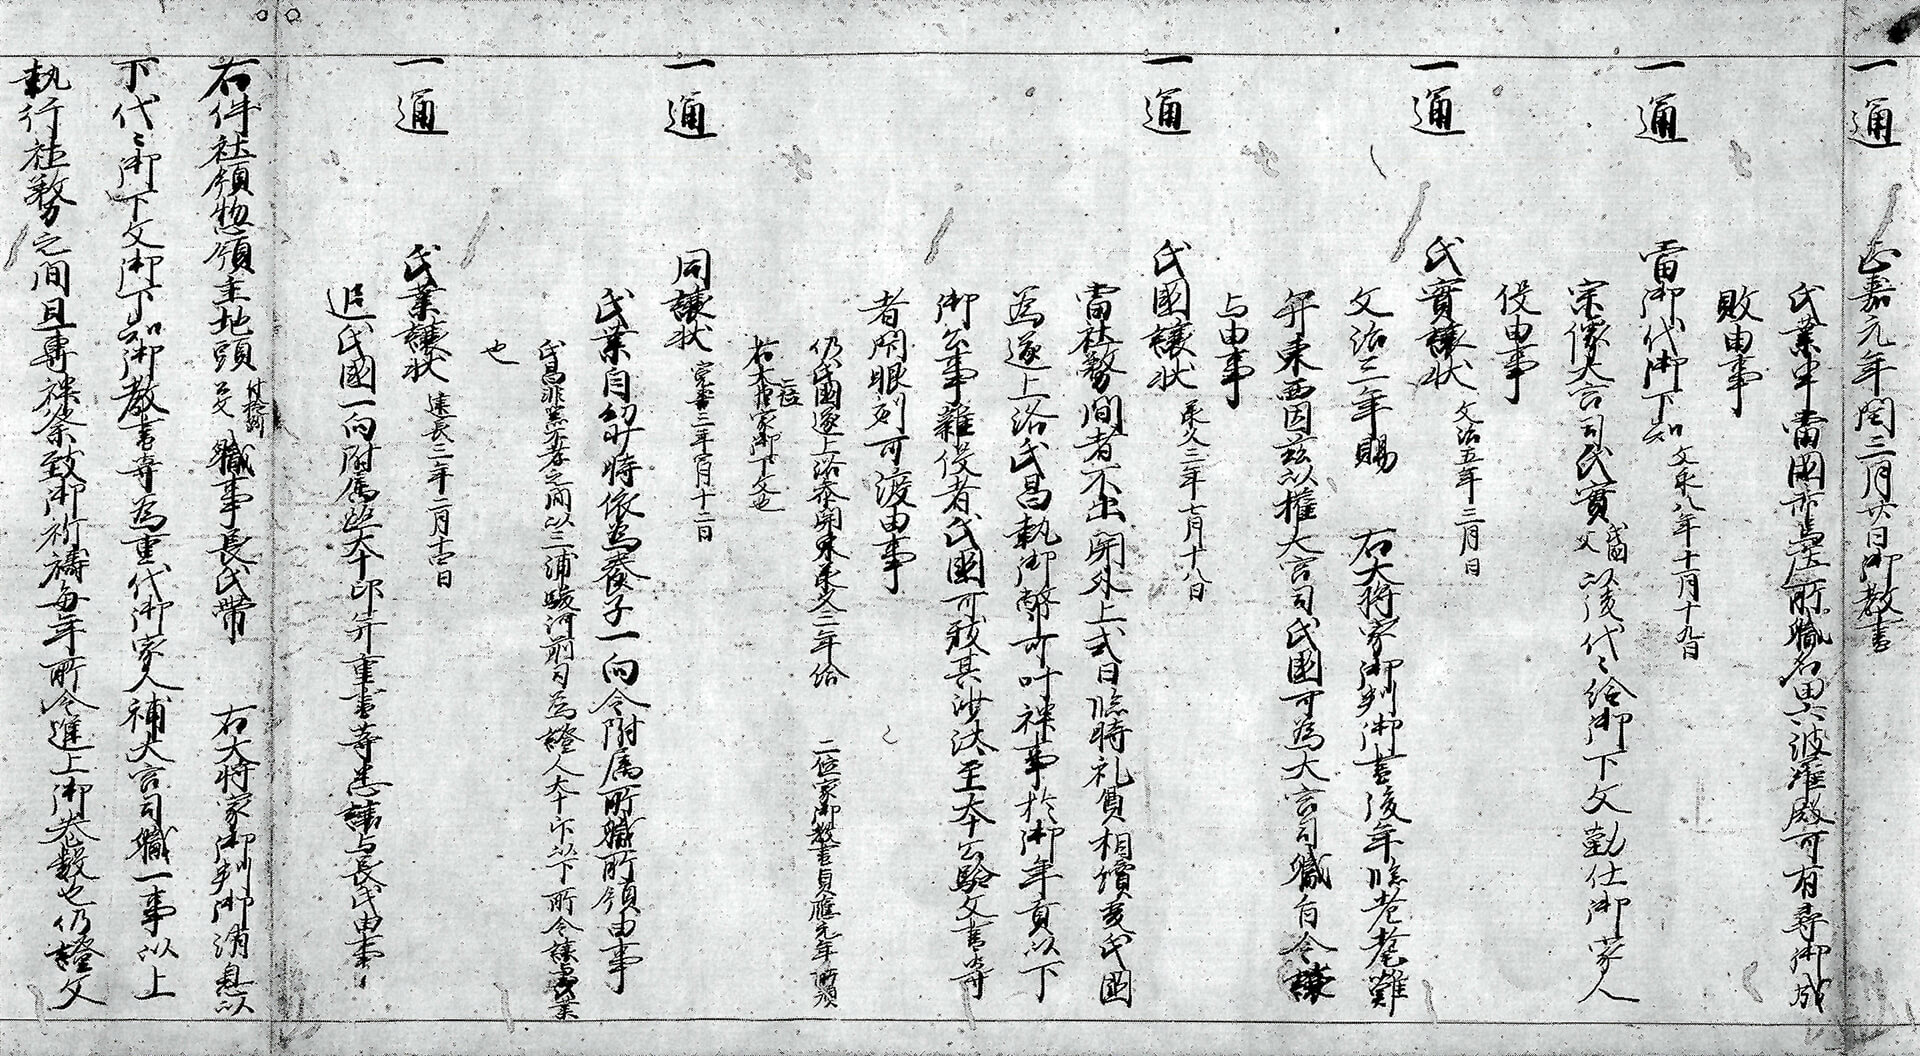 一通　正嘉元年閏三月廿日御教書
氏業申當國所々
所職名田六波羅殿可有尋御成
敗由事
一通　當御代御下知 文永八年十一月十九日
宗像大宮司氏實 氏國父 以後代々給御下文勤仕御家人
役由事
一通　氏實讓状 文治五年三月日
文治二年賜　右大将家御判御書後年臨老耄難
行東西因茲以權大宮司氏國可為大宮司職自令讓
与由事
一通　氏國讓状 承久三年七月十八日
當社務間者不出関外上式日臨時礼奠相續
氏國
為遂上洛氏昌執御幣可叶神事於御年貢以下
御公事雜役者氏國可致其沙汰至本公驗文書等
者閇眼刻可渡由事
仍氏國遂上洛参関東承久三年給　二位家御教書貞應元年
右大臣家御下文也
一通　同讓状
三年
月十二日
氏業自幼少時依為養子一向令附属所職所領由事
氏昌非
不孝之間以三浦駿河前司為證人
以下所令讓
氏業
也
一通　氏業讓状 建長三年二月十四日
追氏國一向附属
重書等悉讓与長氏由事
右件社領惣領主地頭
職事長氏帯　右大将家御判御消息以
下代々御下文御下知御教書等為重代御家人補大宮司職一事以上
執行社務之間且專神祭致御祈禱每年所令進上御巻數也仍證文